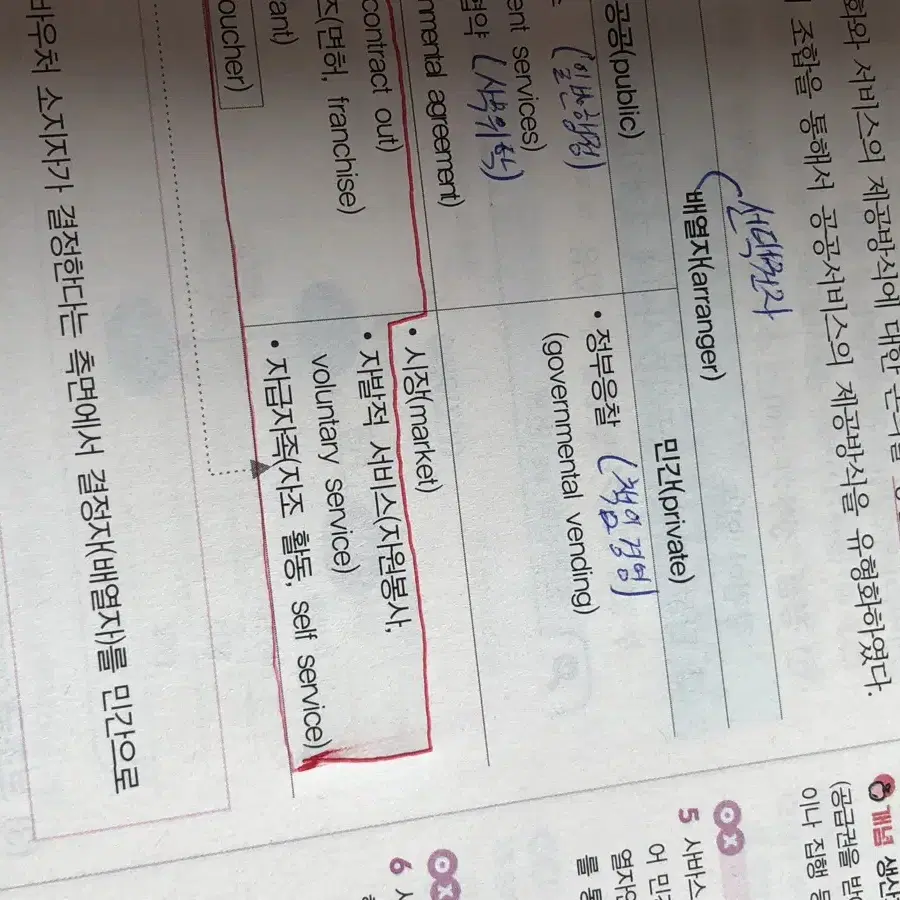 화와 서비스의 제공방식에 대한
조합을 통해서 공공서비스의 제공방식을 유형화하였다.
선택권자
배열자(arranger)
공공(public)
민간(private)
(일반행정)
ent services)
협약 (사무위탁)
nmental agreement)
• 정부응찰 (책임경영)
(governmental vending)
contract out)
즈(면허, franchise)
ant)
oucher)
• 시장(market)
• 자발적 서비스(자원봉사,
voluntary service)
• 자급자족(자조 활동, self service)
바우처 소지자가 결정한다는 측면에서 결정자(배열자)를 민간으로
개념 생산
(공급권을 받
이나 집행 등
OX
5 서비스
어 민
열자인
를 통
OX
6